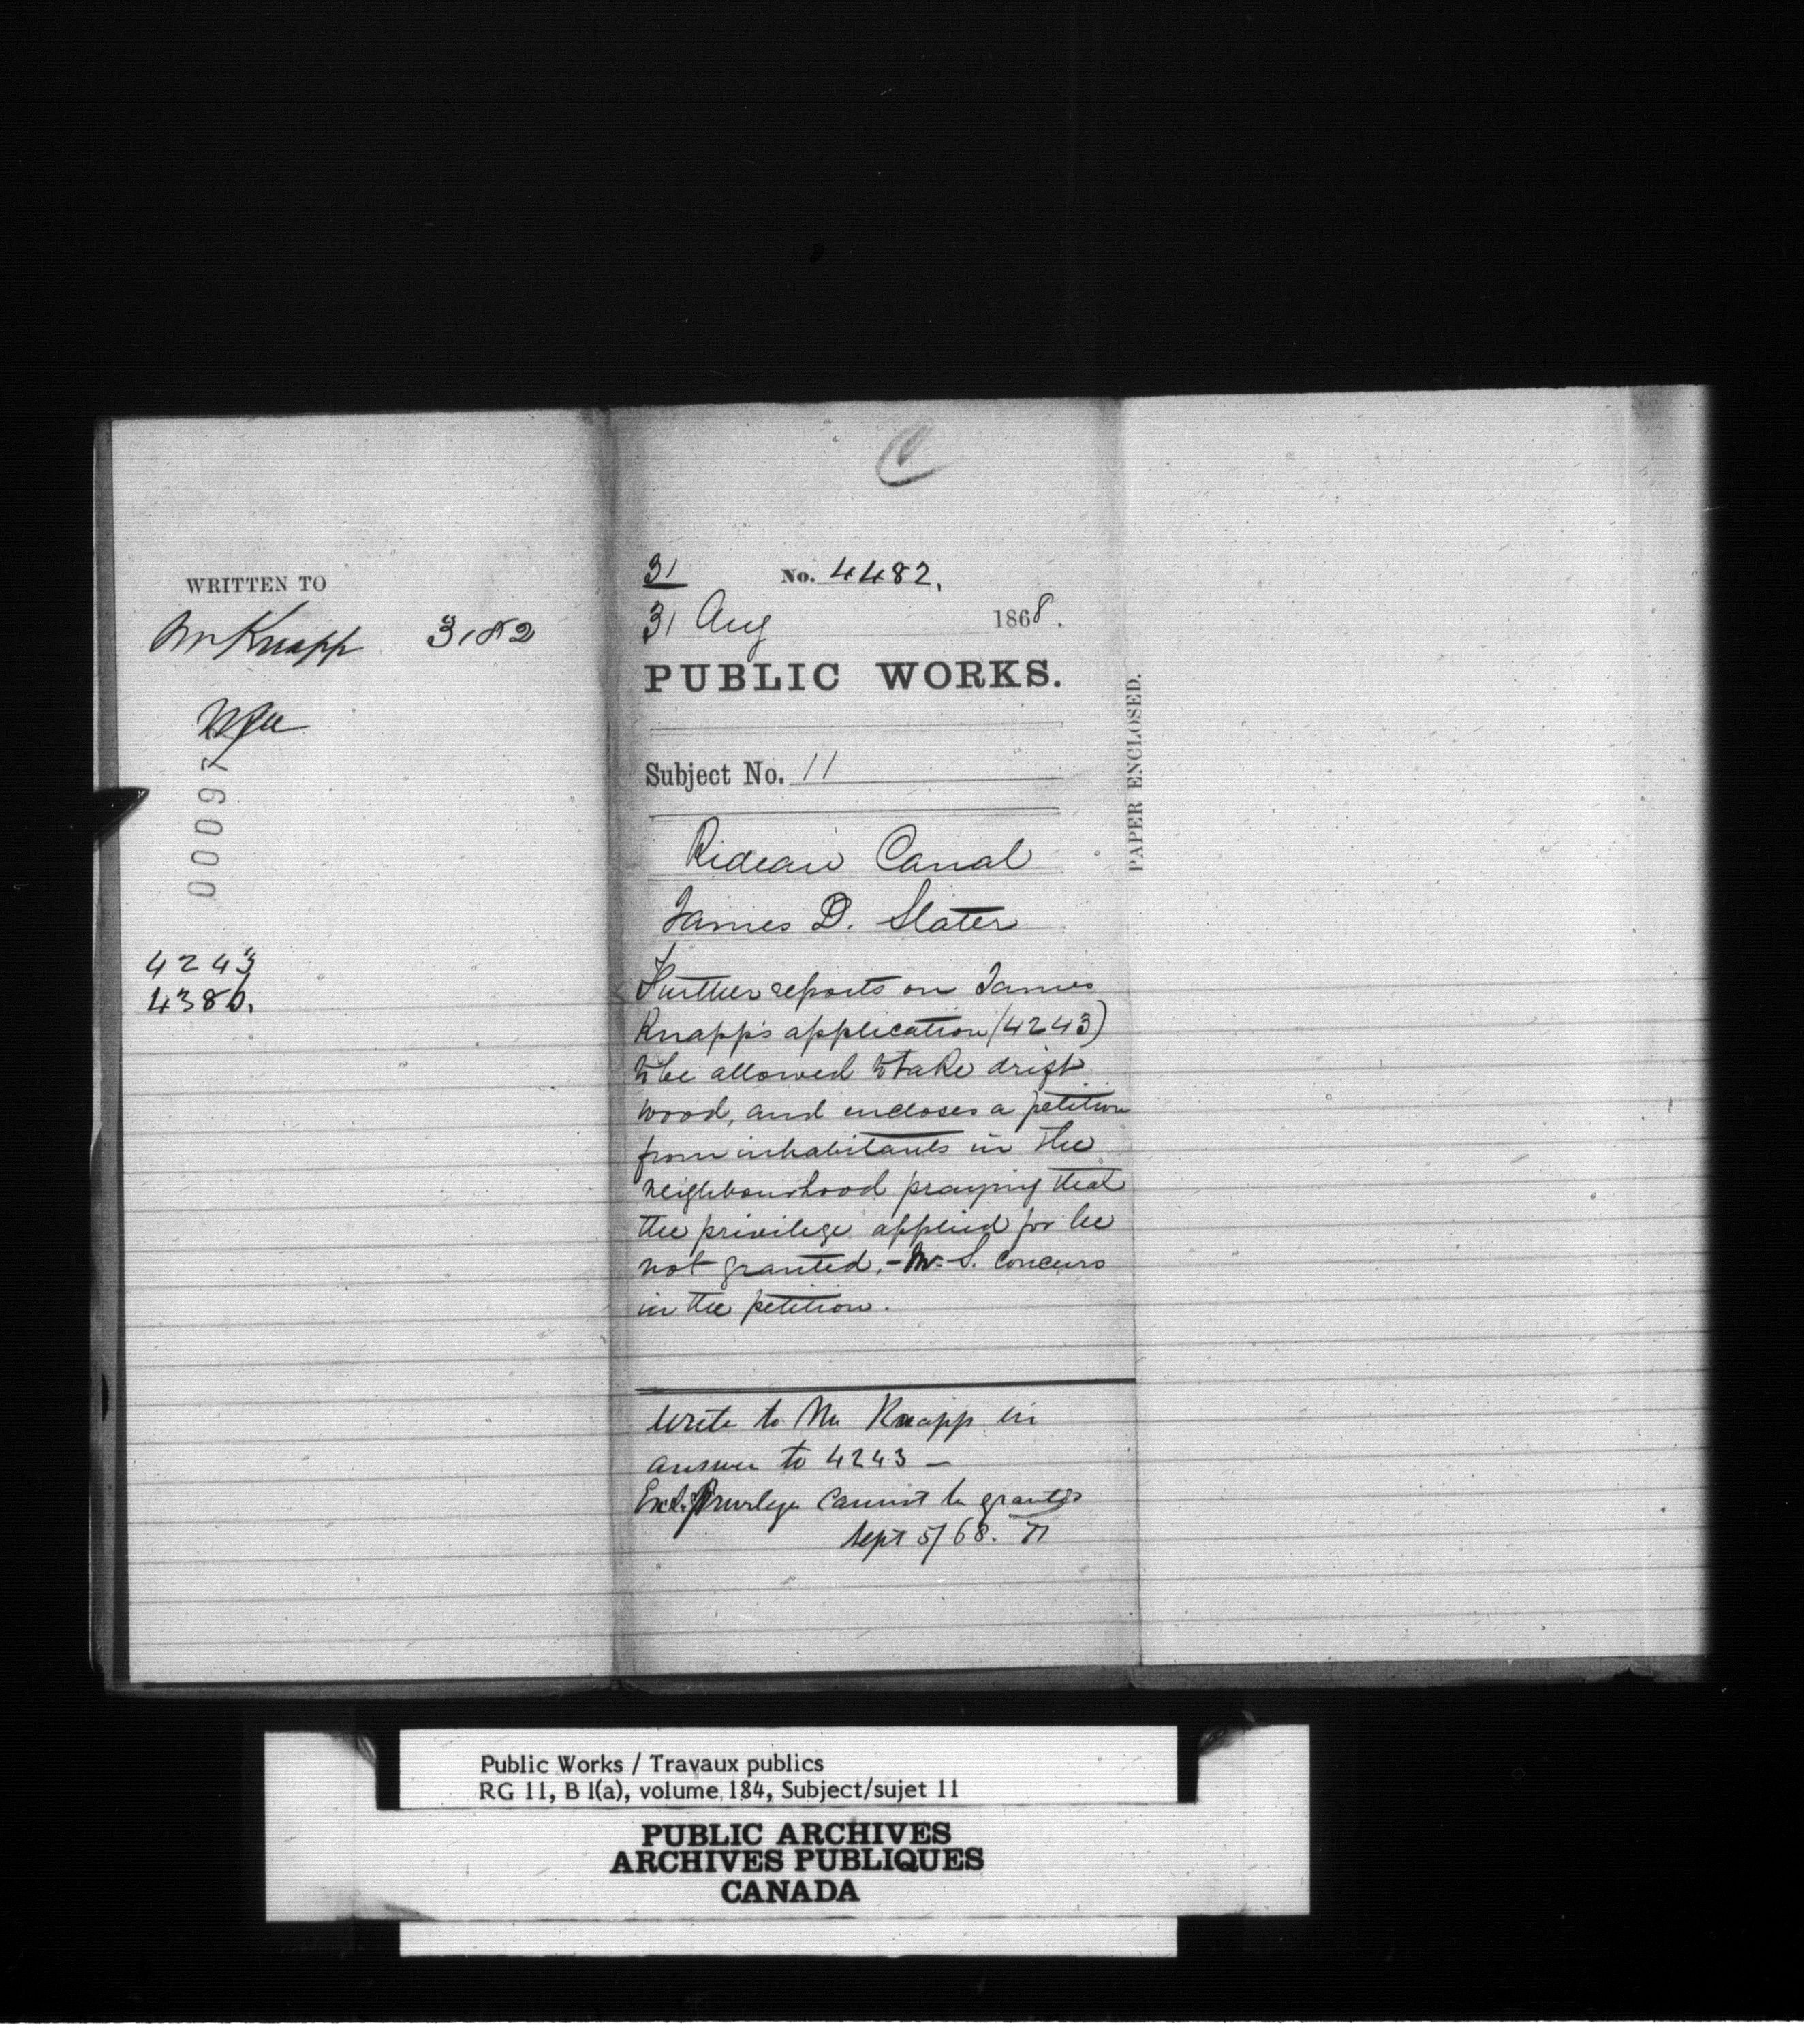 WRITTEN TO
Mr Knapp 3182
00097
4243
4386.
C
31 No. 4482.
31 Aug 1868.
PUBLIC WORKS.
Subject No. 11
Rideau Canal
James D. Slater
Further reports on James
Knapp's application (4243)
to be allowed to take drift
wood, and encloses a petition
from inhabitants in the
neighbourhood praying that
the privilege applied for be
not granted. - Mr. S. concurs
in the petition.
Write to Mr Knapp in
answer to 4243 -
Excl. Privilege cannot be granted
Sept 5/68.
PAPER ENCLOSED.
Public Works / Travaux publics
RG 11, B 1(a), volume 184, Subject/sujet 11
PUBLIC ARCHIVES
ARCHIVES PUBLIQUES
CANADA